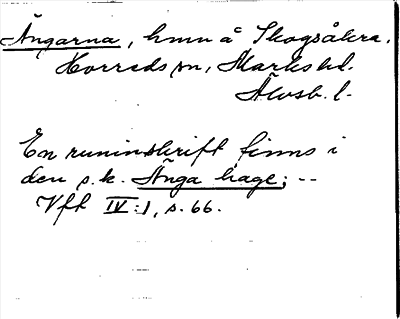 Ängarna, hmn å Skogsåkra.
Horreds sn, Marks hd.
Älvsb. l.
En runinskrift finns i
den s.k. Änga hage; --
Vft IV:1, s. 66.